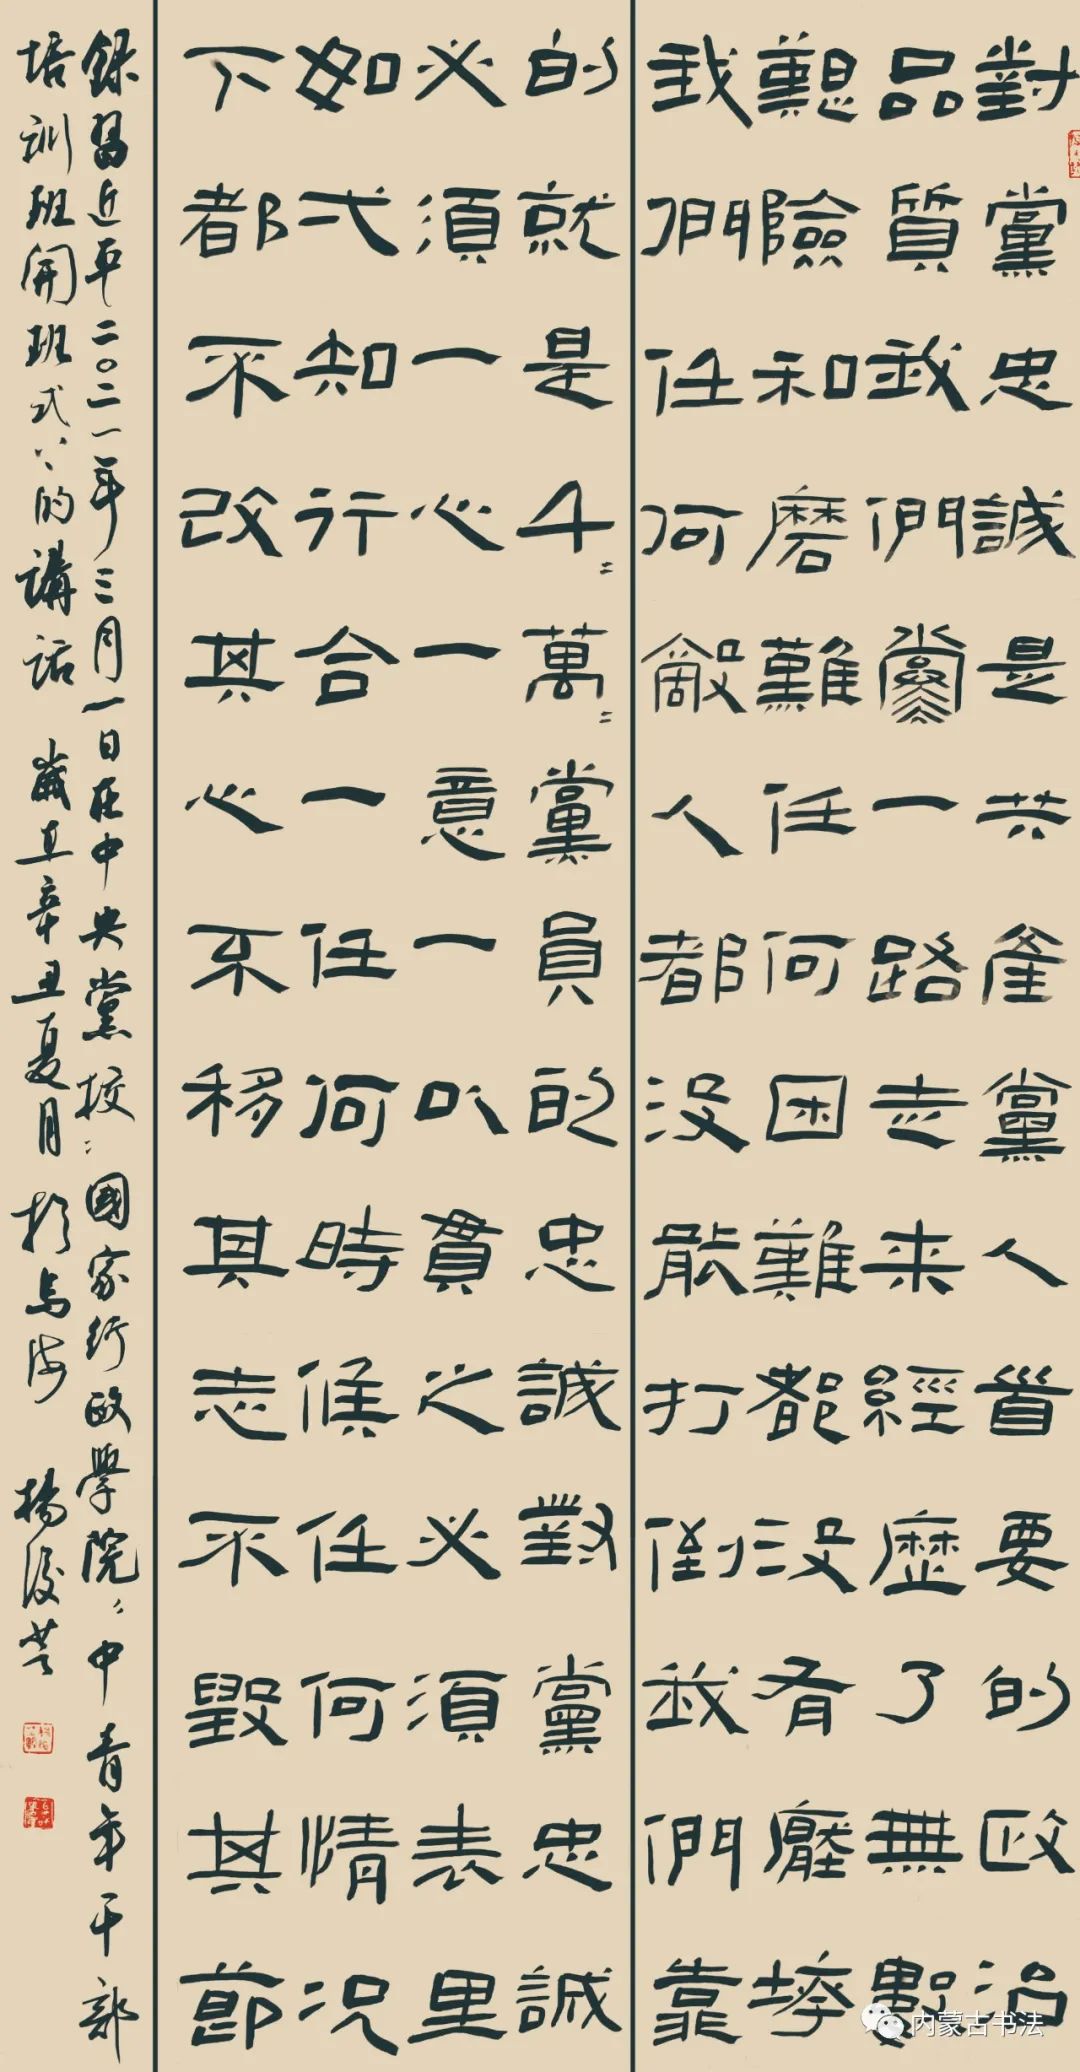 對黨忠誠是共產黨人首要的政治
品質我們黨一路走來經歷了無數
艱險和磨難任何困難都沒有壓垮
我們任何敵人都沒能打倒我們靠
的就是千〻萬〻黨員的忠誠對黨忠誠
必須一心一意一以貫之必須表里
如弌知行合一任何時候任何情況
下都不改其心不移其志不毀其節
錄習近平二〇二一年三月一日在中央黨校國家行政學院中青年干部
培訓班開班式上的講話 歲在辛丑夏月於烏海 楊
内蒙古书法